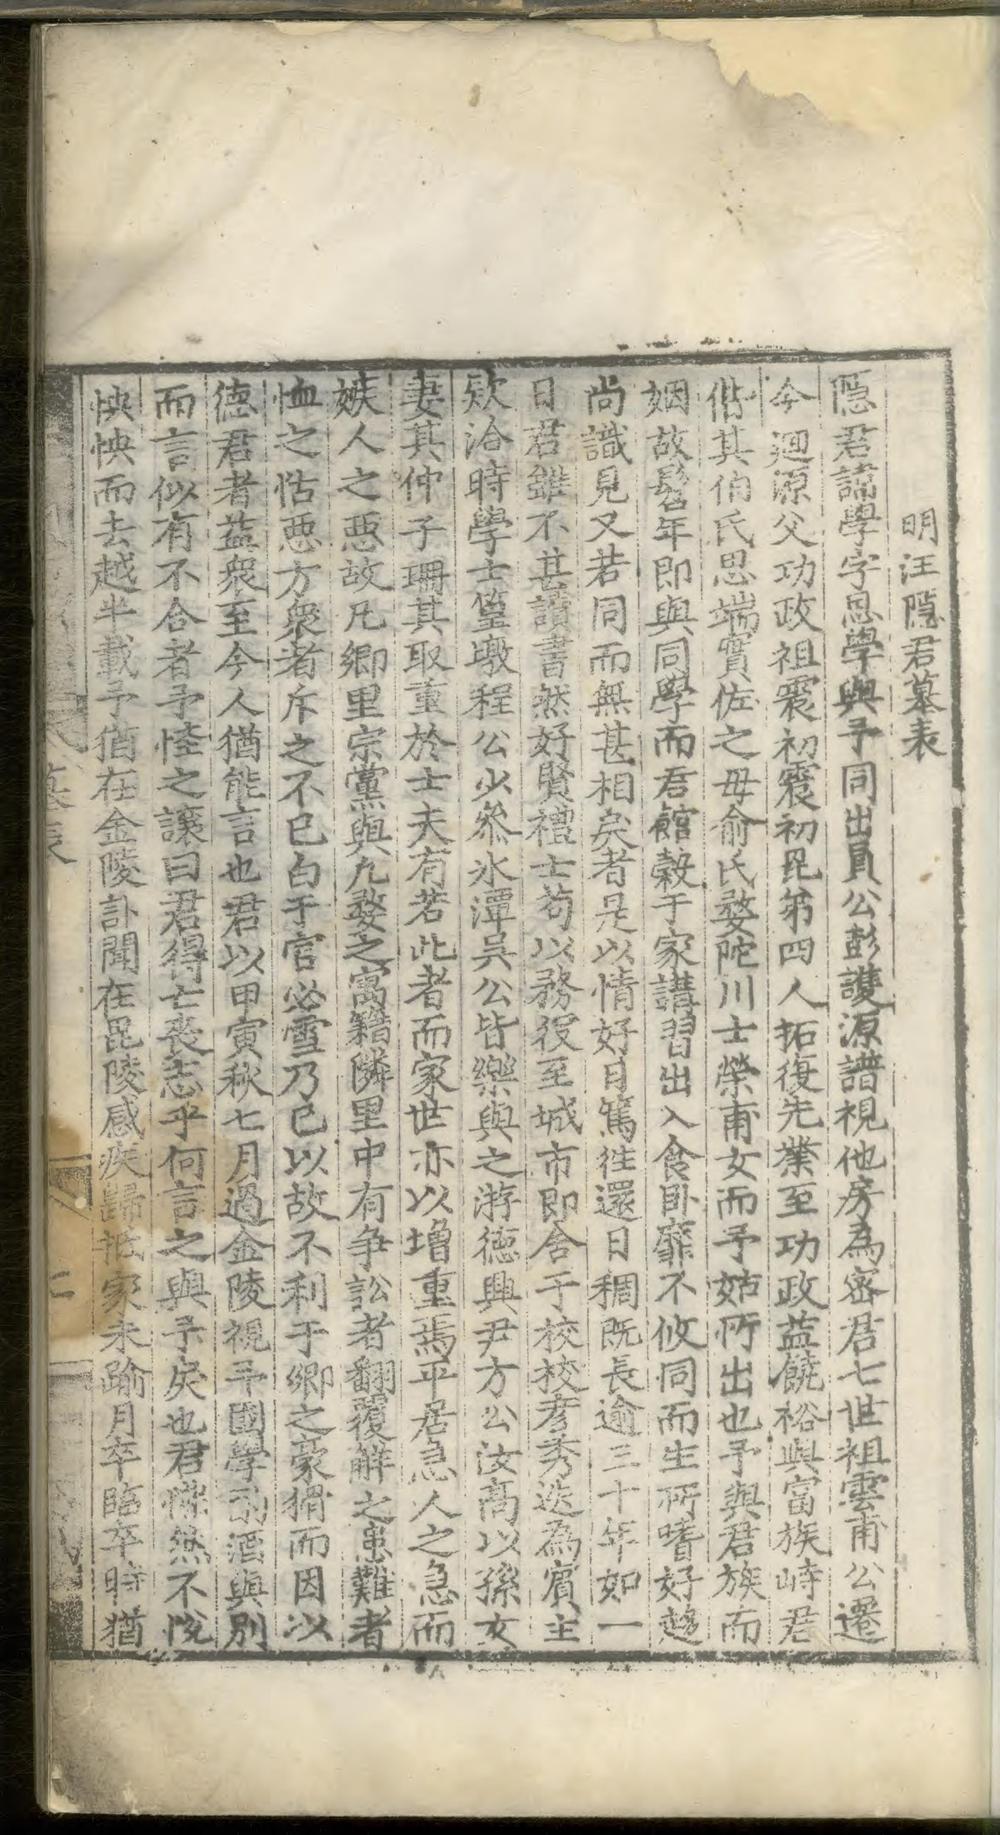 明汪隱君墓表
隱君諱學字思學與予同出員公彭雙源譜視他房為密君七世祖雲甫公遷
今迴源父功政祖震初震初昆弟四人拓復先業至功政益饒裕與富族峙君
偕其伯氏思端實佐之母俞氏娶陀川士榮甫女而予姑所出也予與君族而
姻故髫年即與同學而君館穀于家講習出入食卧靡不攸同而生所嗜好趨
尚識見又若同而無甚相矣者是以情好日篤往還日稠既長逾三十年如一
日君雖不甚讀書然好賢禮士苟以務役至城市即舍于校校彥秀迭為賓主
欵洽時學士篁墩程公少叅氷潭吳公皆樂與之游德興尹方公汝高以孫女
妻其仲子珊其取重於士夫有若此者而家世亦以增重焉平居急人之急而
嫉人之惡故凡鄉里宗黨與凡婺之寓籍隣里中有争訟者翻覆解之患難者
恤之怙惡方衆者斥之不已白于官必雪乃已以故不利于鄉之豪猾而因以
德君者益衆至今人猶能言也君以甲寅秋七月過金陵視予國學酌酒與別
而言似有不合者予怪之讓曰君得亡喪志乎何言之與予矣也君慘然不悅
怏怏而去越半載予猶在金陵訃聞在毘陵感疾歸抵家未踰月卒臨卒時猶
墓表
二